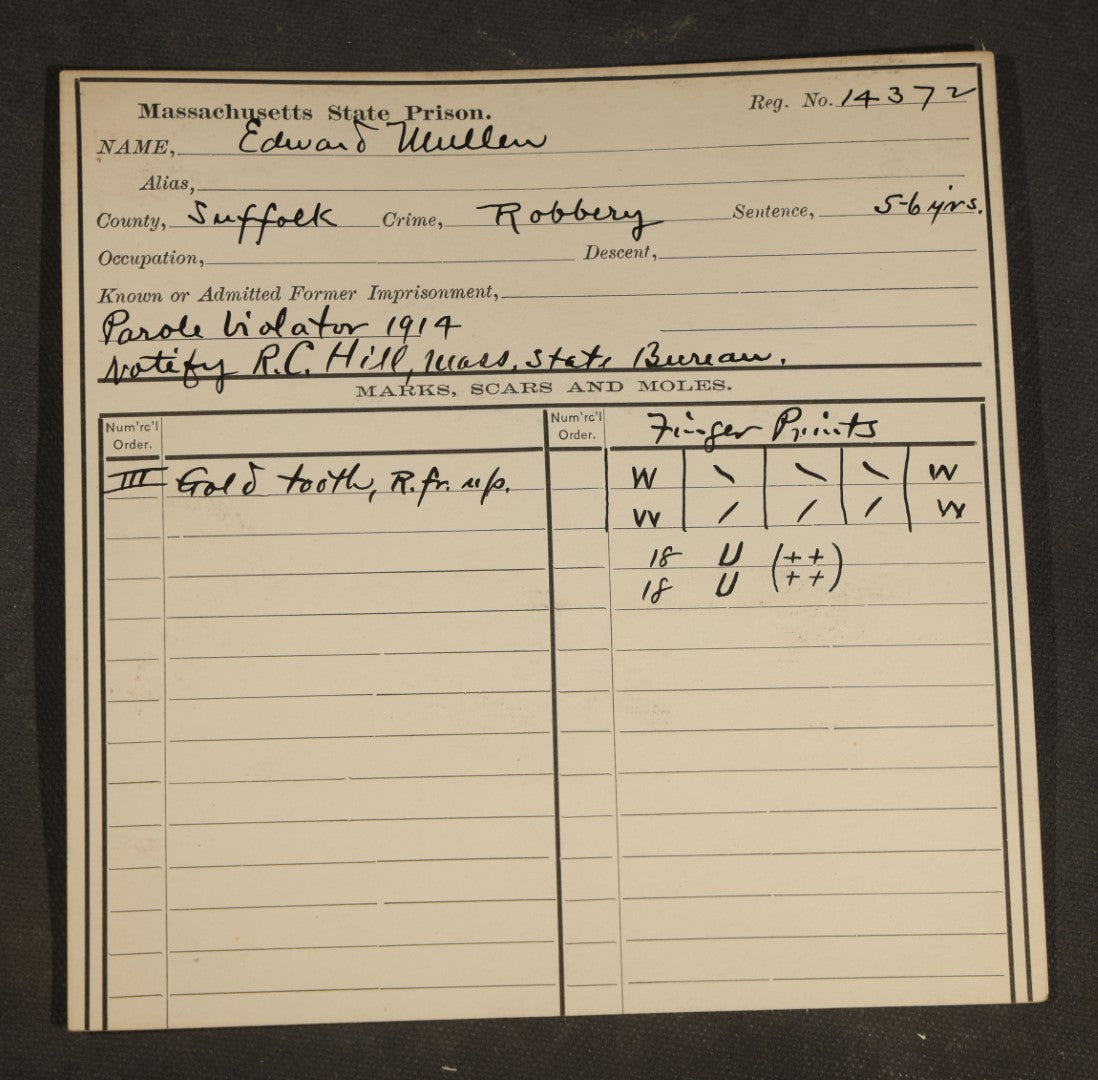 Massachusetts State Prison. Reg. No. 14372
NAME, Edward Mullen
Alias,
County, Suffolk Crime, Robbery Sentence, 5-6 yrs.
Occupation, Descent,
Known or Admitted Former Imprisonment,
Parole Violator 1914
Notify R.C. Hill, Mass. State Bureau.
MARKS, SCARS AND MOLES.
Num'rc'l Order. Num'rc'l Order. Finger Prints
III Gold tooth, R. fr. up. W \ \ \ W
W / / / W
18 U (++
18 U ++)